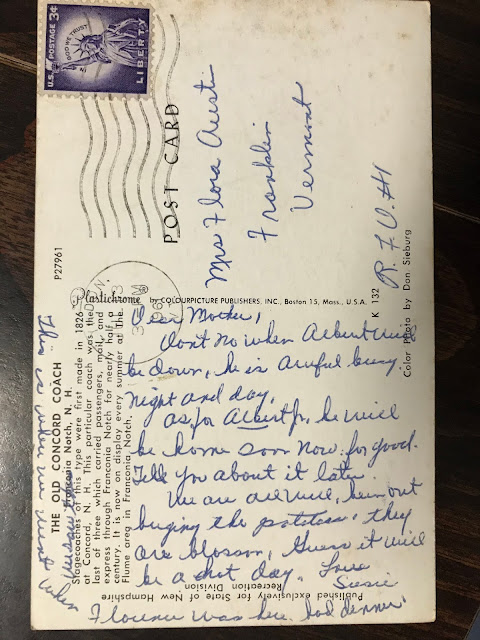 U.S. POSTAGE 3¢
IN GOD WE TRUST
LIBERTY
POST CARD
Mrs Flora Austi
Franklin
Vermont
R.F.D. #1
P27961
Plastichrome by COLOURPICTURE PUBLISHERS, INC., Boston 15, Mass., U.S.A.
K 132
Color Photo by Don Sieburg
THE OLD CONCORD COACH
Franconia Notch, N. H.
Stagecoaches of this type were first made in 1826
at Concord, N. H. This particular coach was the
last of three which carried passengers, mail, and
express through Franconia Notch for nearly half a
century. It is now on display every summer at The
Flume area in Franconia Notch.
Published exclusively for State of New Hampshire
Recreation Division
Dear Mother,
Dont no when Albert will
be down, he is awful busy
night and day,
as for Albert jr, he will
be home soon now. for good.
Tell you about it later.
We are all well, been out
buging the potatoes, they
are blossom, Guess it will
be a hot day. Love
Susie
This is where we went when
Florence was here. had dinner.